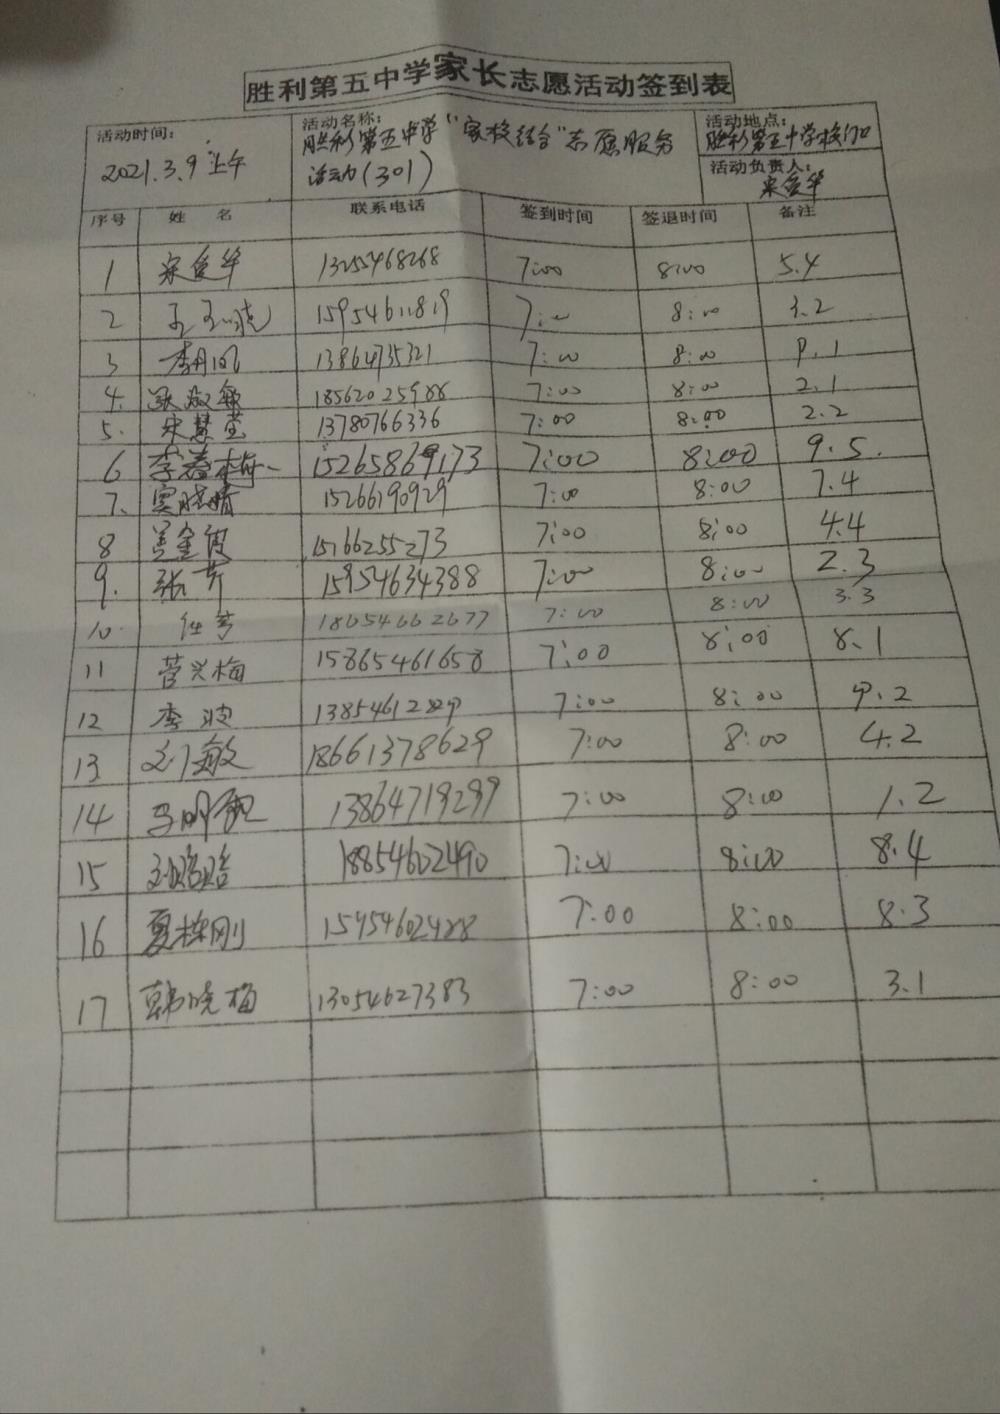 胜利第五中学家长志愿活动签到表
活动时间： 2021.3.9 上午
活动名称： 胜利第五中学“家校结合”志愿服务
活动(301)
活动地点： 胜利第五中学校门口
活动负责人： 宋金华
序号 姓名 联系电话 签到时间 签退时间 备注
1 宋金华 13255468268 7:00 8:00 5.4
2 15954611819 7:00 8:00 3.2
3 李丹凤 13864735321 7:00 8:00 9.1
4. 张敬敏 18562025988 7:00 8:00 2.1
5. 宋慧莹 13780766336 7:00 8:00 2.2
6 李春梅 15265869173 7:00 8:00 9.5.
7. 窦晓晴 15266190929 7:00 8:00 7.4
8 姜金波 15166255273 7:00 8:00 4.4
9. 张芹 15954634388 7:00 8:00 2.3
10. 任芳 18654662677 7:00 8:00 3.3
11 菅兴梅 15865461658 7:00 8:00 8.1
12 李波 7:00 8:00 9.2
13 刘敏 18661378629 7:00 8:00 4.2
14 13864719299 7:00 8:00 1.2
15 18854602490 7:00 8:00 8.4
16 夏栋刚 15954602428 7:00 8:00 8.3
17 韩晓梅 13054627383 7:00 8:00 3.1